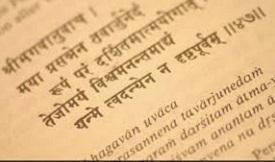 श्रीभगवानुवाच ।
मया प्रसन्नेन तवार्जुनेदं
रूपं परं दर्शितमात्मयोगात् ।
तेजोमयं विश्वमनन्तमाद्यं
यन्मे त्वदन्येन न दृष्टपूर्वम् ॥४७॥
bhagavān uvāca
prasannena tavārjunedaṁ
paraṁ darśitam ātma-y
viśvam anantam
yena na dr